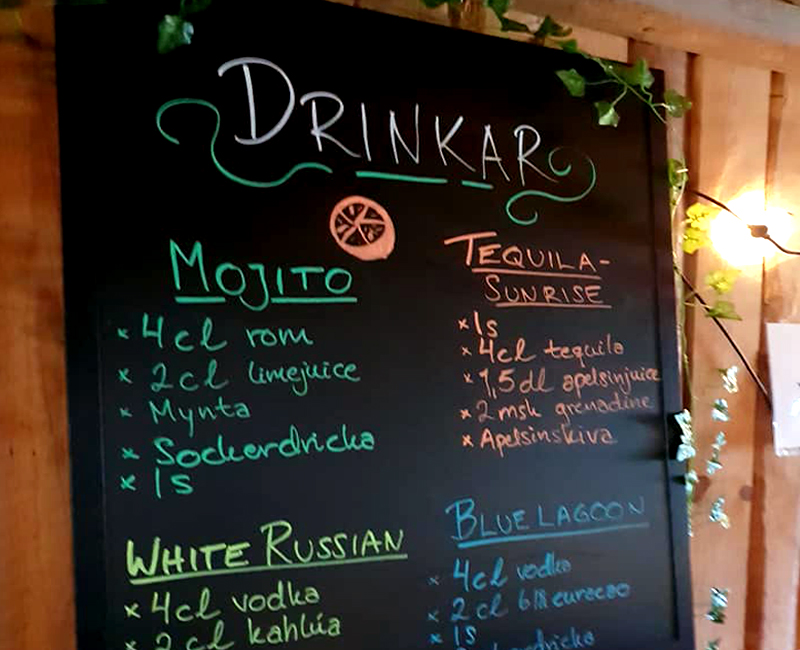 DRINKAR
MOJITO
× 4 cl rom
× 2 cl limejuice
× Mynta
× Sockerdricka
× Is
TEQUILA-
SUNRISE
× Is
× 4cl tequila
× 1,5 dl apelsinjuice
× 2 msk grenadine
× Apelsinskiva
WHITE RUSSIAN
× 4 cl vodka
× 2 cl kahlúa
BLUE LAGOON
× 4 cl vodka
× 2 cl blå curacao
× Is